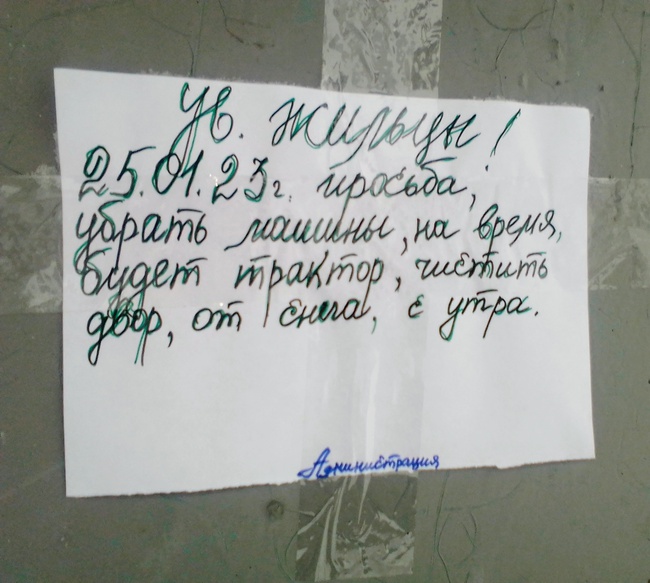 Ув. жильцы!
25.01.23г. просьба,
убрать машины, на время,
будет трактор, чистить
двор, от снега, с утра.
Администрация